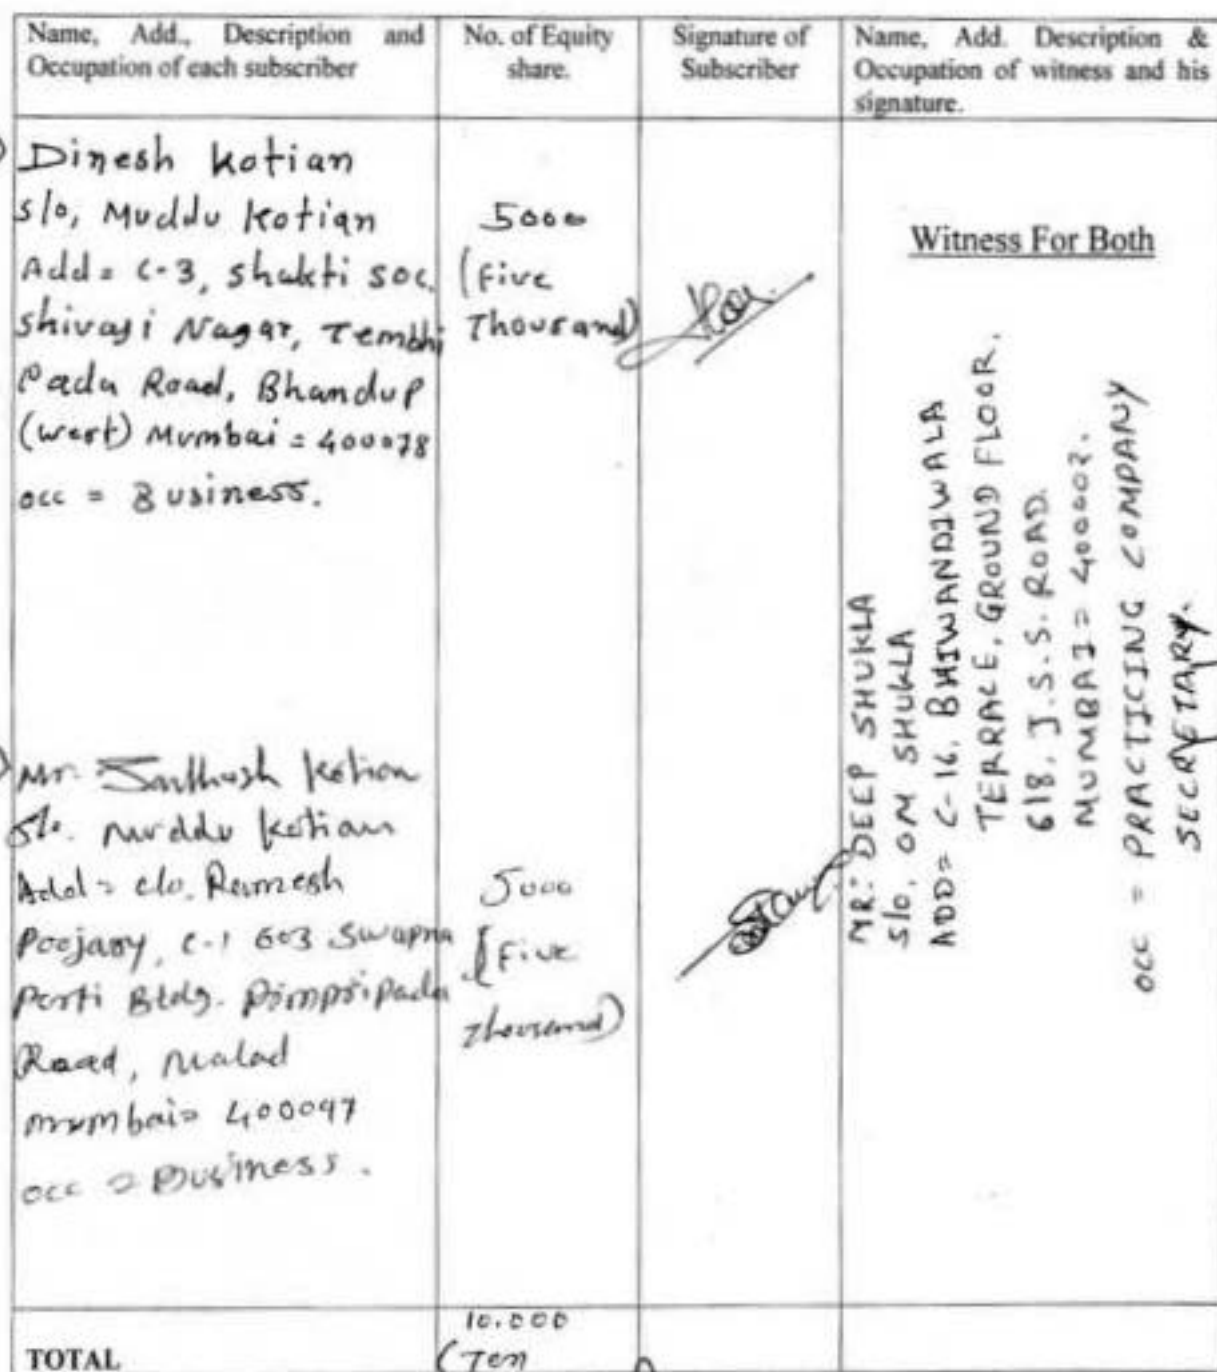 Name, Add., Description and
Occupation of each subscriber
No. of Equity
share.
Signature of
Subscriber
Name, Add. Description &
Occupation of witness and his
signature.
Dinesh Kotian
s/o, Muddu Kotian
Add = C-3, Shakti Soc.
Shivaji Nagar, Tembhi
Pada Road, Bhandup
(west) Mumbai = 400078
occ = Business.
5000
(Five
Thousand)
Witness For Both
MR. DEEP SHUKLA
S/o. OM SHUKLA
ADD = C-16, BHIWANDIWALA
TERRACE, GROUND FLOOR,
618, J.S.S. ROAD.
MUMBAI = 400002.
OCC = PRACTICING COMPANY
SECRETARY.
Mr. Kotian
S/o. Muddu Kotian
Add = c/o. Ramesh
Poojary, C-1 603 Swapna
Purti Bldg. Pimpripada
Road, Malad
Mumbai = 400097
occ = Business.
5000
(Five
Thousand)
TOTAL
10.000
(Ten